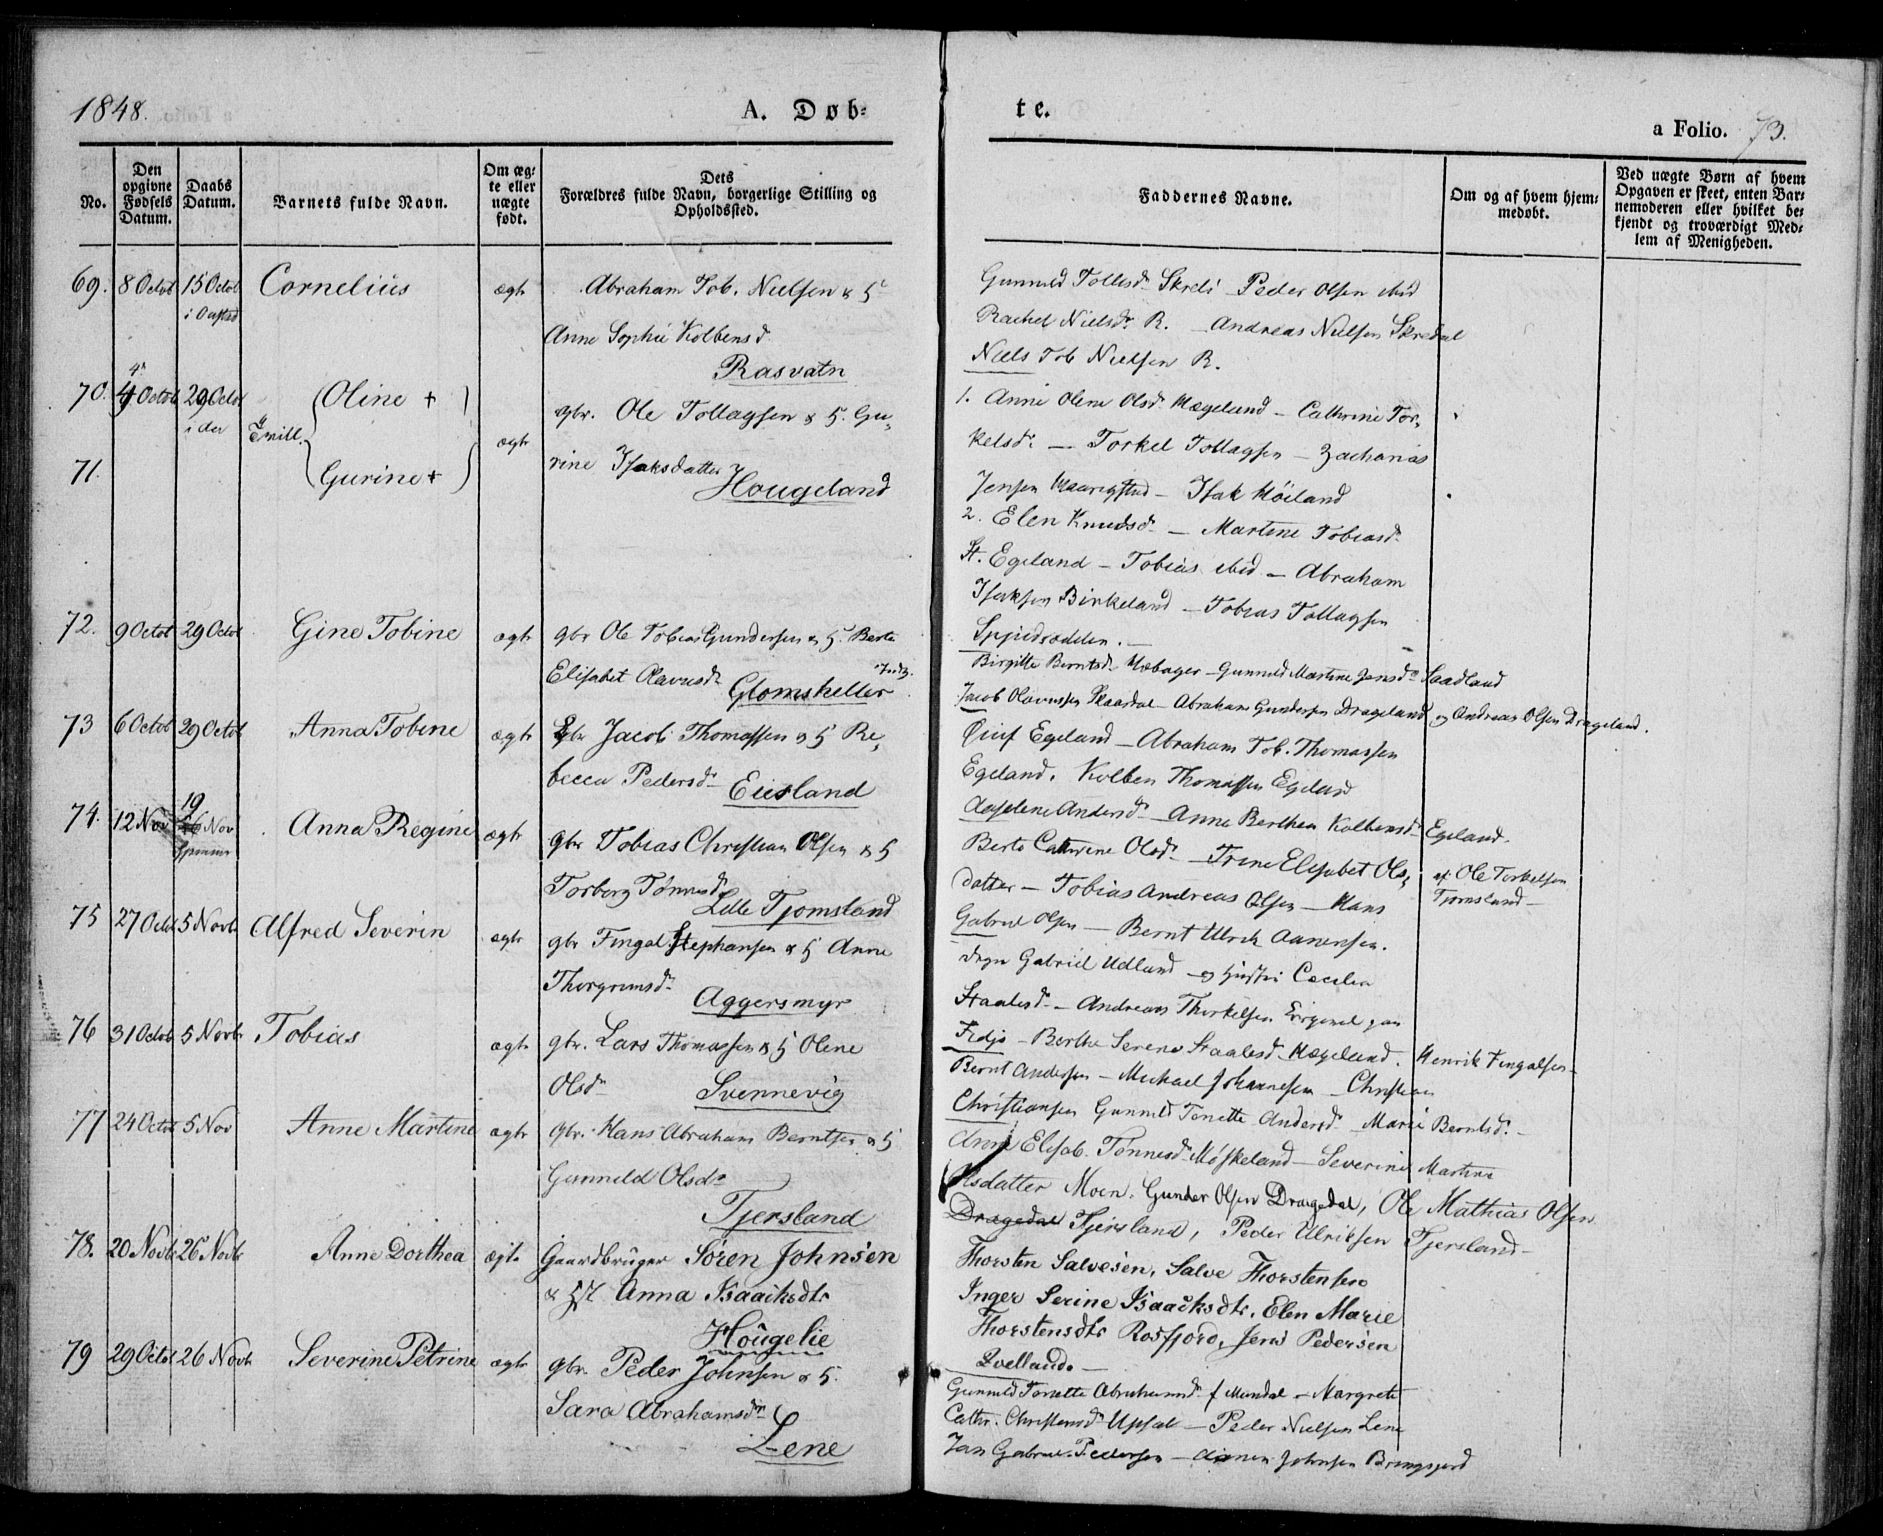 1848.
A. Døb=
te.
a Folio. 73.
No.
Den opgivne Fødsels Datum.
Daabs Datum.
Barnets fulde Navn.
Om æg= te eller uægte født.
Dets Forældres fulde Navn, borgerlige Stilling og Opholdssted.
Faddernes Navne.
Om og af hvem hjem= medøbt.
Ved uægte Børn af hvem Opgaven er skeet, enten Bar= nemoderen eller hvilket be= kjendt og troværdigt Med= lem af Menigheden.
69. 8 Octob 15 Octob Cornelius ægte Abraham Tob. Nielsen & H
Anne Sophie Kolbensd
Rasvatn
Gunnild Tollisdr Skreli Peder Olsen ibid
Rachel Nielsdr R. — Andreas Nielsen Skredal
Niels Tob Nielsen R.
70. 4 Octob 29 Octob Oline +
71. Gurine + ægte
gbr. Ole Tollagsen & H. Gu=
rine Isaksdatter
Hougeland
1. Anne Olene Olsdr Hægeland — Cathrine Tor=
kelsdr — Torkel Tollagsen — Zacharias
Jensen — Isak Høiland
2. Elen Knudsdr — Martine Tobiasdr
St. Egeland — Tobias ibid — Abraham
Isaksen Birkeland — Tobias Tollagsen
72. 9 Octob 29 Octob Gine Tobine ægte gbr Ole Tobias Gundersen & H. Berte
Elisabet Olavusdr
Glomsheller
Birgitte Berntsdr — Gunnild Martine Jensdr Saadland
Jacob Olavussen — Abraham Gundersen Drageland og Andreas Olsen Drageland.
73 6 Octob 29 Octob Anna Tobine ægte gbr Jacob Thomassen & H Re=
becca Pedersdr
Eiesland
Egeland — Abraham Tob. Thomassen
Egeland. Kolben Thomassen Egeland
Andersdr — Anne Berthea Kolbensdr Egeland.
74. 12 Nov 19 Nov Anna Regine ægte gbr Tobias Christian Olsen & H
Torborg Tønnesdr
Lille Tjomsland
Berte Cathrine Olsdr — Trine Elisabet Ols=
datter — Tobias Andreas Olsen — Hans
Gabriel Olsen — Bernt Ulrik Aanensen.
af Ole Torkelsen
Tjomsland —
75 27 Octob 5 Novb Alfred Severin ægte gbr Fingal Stephansen & H Anne
Thorgrimsdr
Aggersmyr
Gabriel Udland — og Hustru Cæcilia
Staalesdr — Andreas Thorkelsen
— Berthe Serene Staalesdr Hægeland. Henrik Fingalsen —
76 31 Octob 5 Novb Tobias ægte gbr. Lars Thomassen & H Olene
Olsdr
Svennevig
Bernt Andersen — Michael Johannesen — Christian
Christiansen Gunnild Tonette Andersdr Marie Berntsdr. —
77 24 Octob 5 Nov Anne Martine ægte gbr. Hans Abraham Berntsen & H
Gunnild Olsdr
Tjersland
Anne Elisab. Tønnesdr Møskeland — Severine Martine
Olsdatter Moen. Gunder Olsen Dragedal, Ole Mathias Olsen
Dragedal Tjersland, Peder Ulriksen Tjersland —
78. 20 Novb 26 Novb Anne Dorthea ægte Gaardbruger Sören Johnsen
& H Anna Isaacksdtr
Hougelie
Thorsten Salvesen, Salve Thorstensen
Inger Serine Isaacksdtr. Elen Marie
Thorstensdtr Rosfjord, Jens Pedersen
Qvelland. —
79 29 Octob 26 Novb Severine Petrine ægte gbr. Peder Johnsen & H.
Sara Abrahamsdr
Lene
Gunnild Tonette Abrahamsdr f Mandal — Margrete
Cathr. Christensdr Upsal — Peder Nielsen Lene
Jan Gabriel Pedersen — Aanen Johnsen Bringsjord